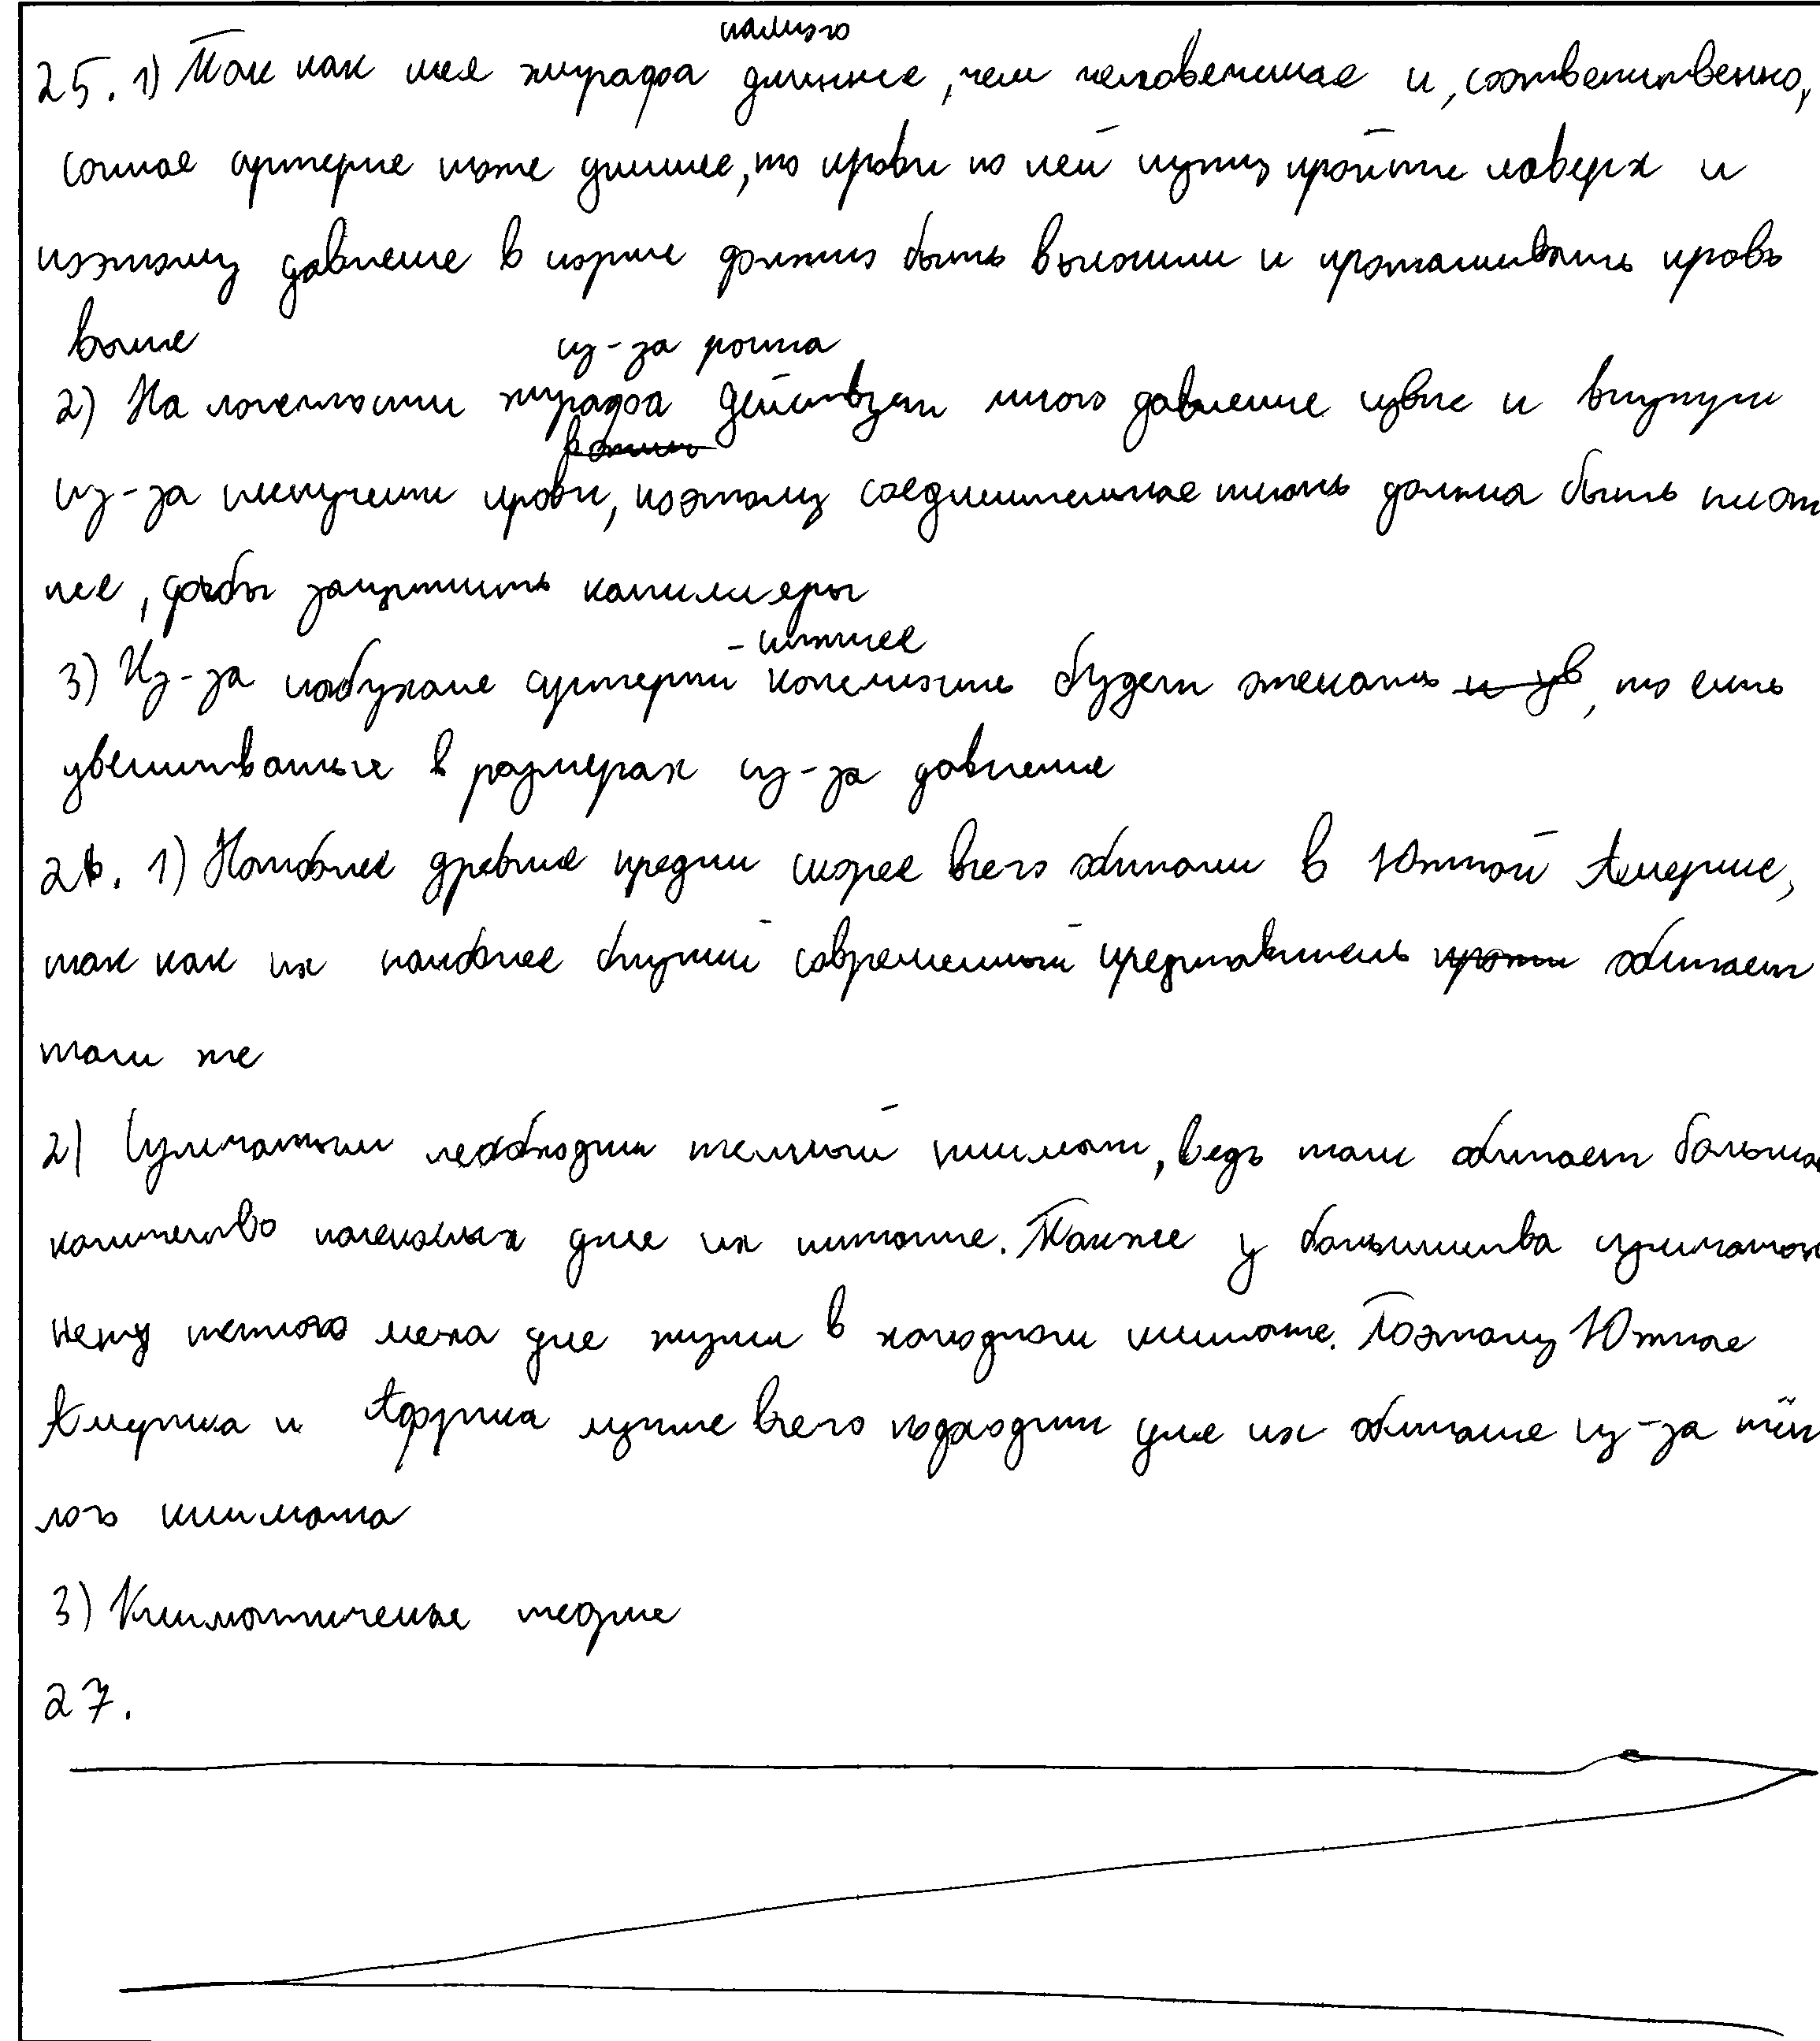 намного
25. 1) Так как шея жирафа длиннее, чем человеческая и, соответственно,
сонная артерия тоже длинее, то крови по ней нужно пройти наверх и
поэтому давление в норме должно быть высоким и проталкивать кровь
выше
из-за роста
2) На конечности жирафа действует много давления извне и внутри
из-за текучести крови, поэтому соединительная ткань должна быть плот
нее, дабы защитить капилляры
- нижнее
3) Из-за набухания артерий конечность будет отекать и ув, то есть
увеличиваться в размерах из-за давления
26. 1) Наиболее древние предки скорее всего обитали в Южной Америке,
так как их наиболее близкий современный представитель обитает
там же
2) Сумчатым необходим теплый климат, ведь там обитает большое
количество насекомых для их питания. Также у большинства сумчатых
нету теплого меха для жизни в холодном климате. Поэтому Южная
Америка и Африка лучше всего подходят для их обитания из-за тёп
лого климата
3) Климатическая теория
27.